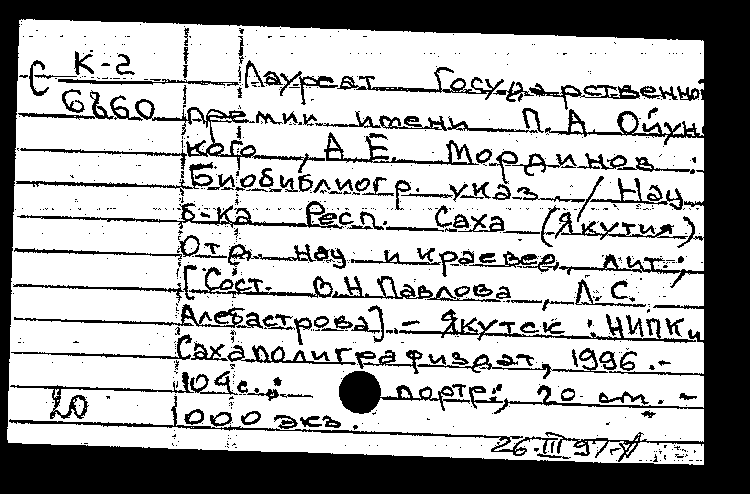 С К-2
6860
Лауреат Государственной
премии имени П.А. Ойун
кого, А.Е. Мординов :
Биобиблиогр. указ. / Нау
б-ка Респ. Саха (Якутия)
Отд. нау. и краевед. лит.;
[Сост. В.Н. Павлова, Л.С.
Алебастрова]. - Якутск : НИПК
Сахаполиграфиздат, 1996. -
104 с.: портр.; 20 см. -
20
1000 экз.
26.III 97